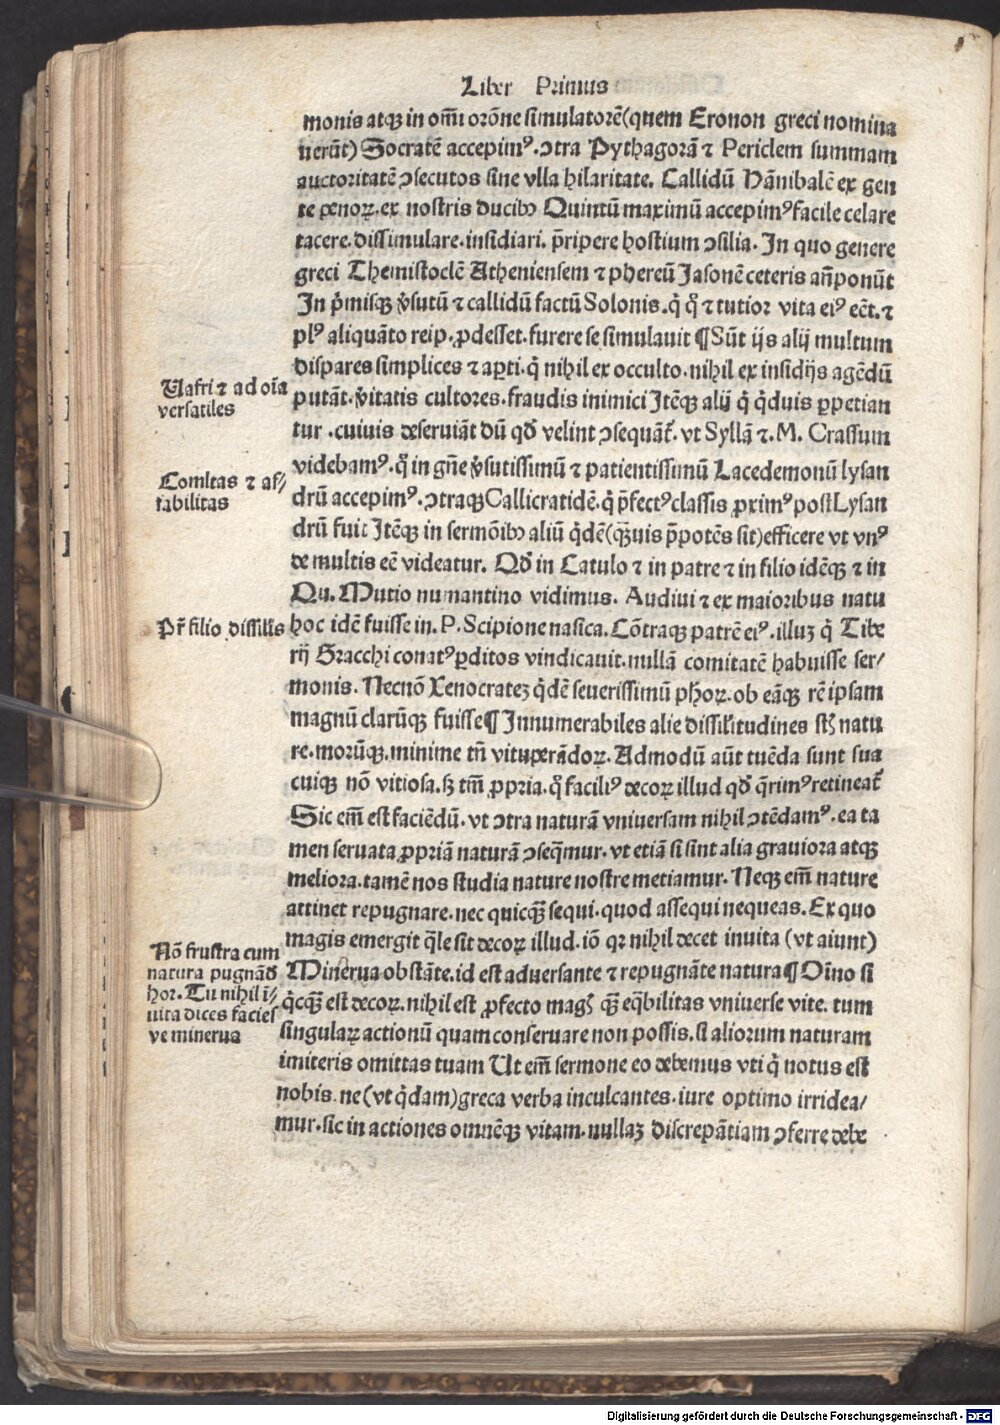 Liber Primus
monis atqꝫ in om̄i orōne simulatorē(quem Eronon greci nomina
uerūt) Socratē accepimꝰ.ɔtra Pythagorā ⁊ Periclem summam
auctoritatē ɔsecutos sine vlla hilaritate. Callidū Hānibalē ex gen
te penoꝝ.ex nostris ducibꝫ Quintū maximū accepimꝰ facile celare
tacere.dissimulare.insidiari.p̄ripere hostium ɔsilia.In quo genere
greci Themistoclē Atheniensem ⁊ phereū Jasonē ceteris an̄ponūt
In p̄misqꝫ v̓sutū ⁊ callidū factū Solonis.q̇ qͦ ⁊ tutior vita eiꝰ eēt.⁊
plꝰ aliquāto reip.ꝓdesset.furere se simulauit ¶ Sūt ijs alij multum
dispares simplices ⁊ aꝑti.q̇ nihil ex occulto.nihil ex insidijs agēdū
putāt.v̓itatis cultores.fraudis inimici Jtēqꝫ alij q̇ q̇duis ꝑpetian
tur.cuiuis deseruiāt dū qđ velint ɔsequāt᷑.vt Syllā ⁊.M.Crassum
videbamꝰ.qͦ in gn̄e v̓sutissimū ⁊ patientissimū Lacedemonū lysan
drū accepimꝰ.ɔtraqꝫ Callicratidē.q̇ p̄fectꝰ classis ꝓximꝰ post Lysan
drū fuit Jtēqꝫ in sermōibꝫ aliū q̇dē(qꝫuis p̄potēs sit)efficere vt vnꝰ
de multis eē videatur. Qđ in Catulo ⁊ in patre ⁊ in filio idēqꝫ ⁊ in
Qu. Mutio numantino vidimus. Audiui ⁊ ex maioribus natu
hoc idē fuisse in.P.Scipione nasica.Cōtraqꝫ patrē eiꝰ.illuꝫ q̇ Tibe
rij Gracchi conatꝰ ꝑditos vindicauit.nullā comitatē habuisse ser⸗
monis.Necnō Xenocrateꝫ q̇dē seuerissimū ph̄oꝝ.ob eāqꝫ rē ipsam
magnū clarūqꝫ fuisse¶ Jnnumerabiles alie dissil̓itudines st̄ natu
re.morūqꝫ.minime tn̄ vituperādoꝝ.Admodū aūt tuēda sunt sua
cuiqꝫ nō vitiosa.sꝫ tm̄ ꝓpria.qͦ faciliꝰ decoꝝ illud qđ q̄rimꝰ retineat᷑
Sic em̄ est faciēdū.vt ɔtra naturā vniuersam nihil ɔtēdamꝰ.ea ta
men seruata ꝓpriā naturā ɔseq̄mur.vt etiā si sint alia grauiora atqꝫ
meliora.tamē nos studia nature nostre metiamur.Neqꝫ em̄ nature
attinet repugnare.nec quicqꝫ sequi.quod assequi nequeas.Ex quo
magis emergit q̄le sit decoꝝ illud.iō qꝛ nihil decet inuita (vt aiunt)
Minerua obstāte.id est aduersante ⁊ repugnāte natura¶ Oīno si
q̇cqꝫ est decoꝝ.nihil est ꝓfecto magꝭ qꝫ eq̄bilitas vniuerse vite.tum
singulaꝝ actionū quam conseruare non possis.si aliorum naturam
imiteris omittas tuam Ut em̄ sermone eo debemus vti q̇ notus est
nobis.ne(vt q̇dam)greca verba inculcantes.iure optimo irridea⸗
mur.sic in actiones omnēqꝫ vitam.nullaꝫ discrepātiam ɔferre debe
Uafri ⁊ ad oīa
versatiles
Comitas ⁊ af⸗
fabilitas
Pr̄ filio dissil̓is
Nō frustra cum
natura pugnād
hor.Tu nihil ī⸗
uita dices facies
ve minerua
Digitalisierung gefördert durch die Deutsche Forschungsgemeinschaft - DFG